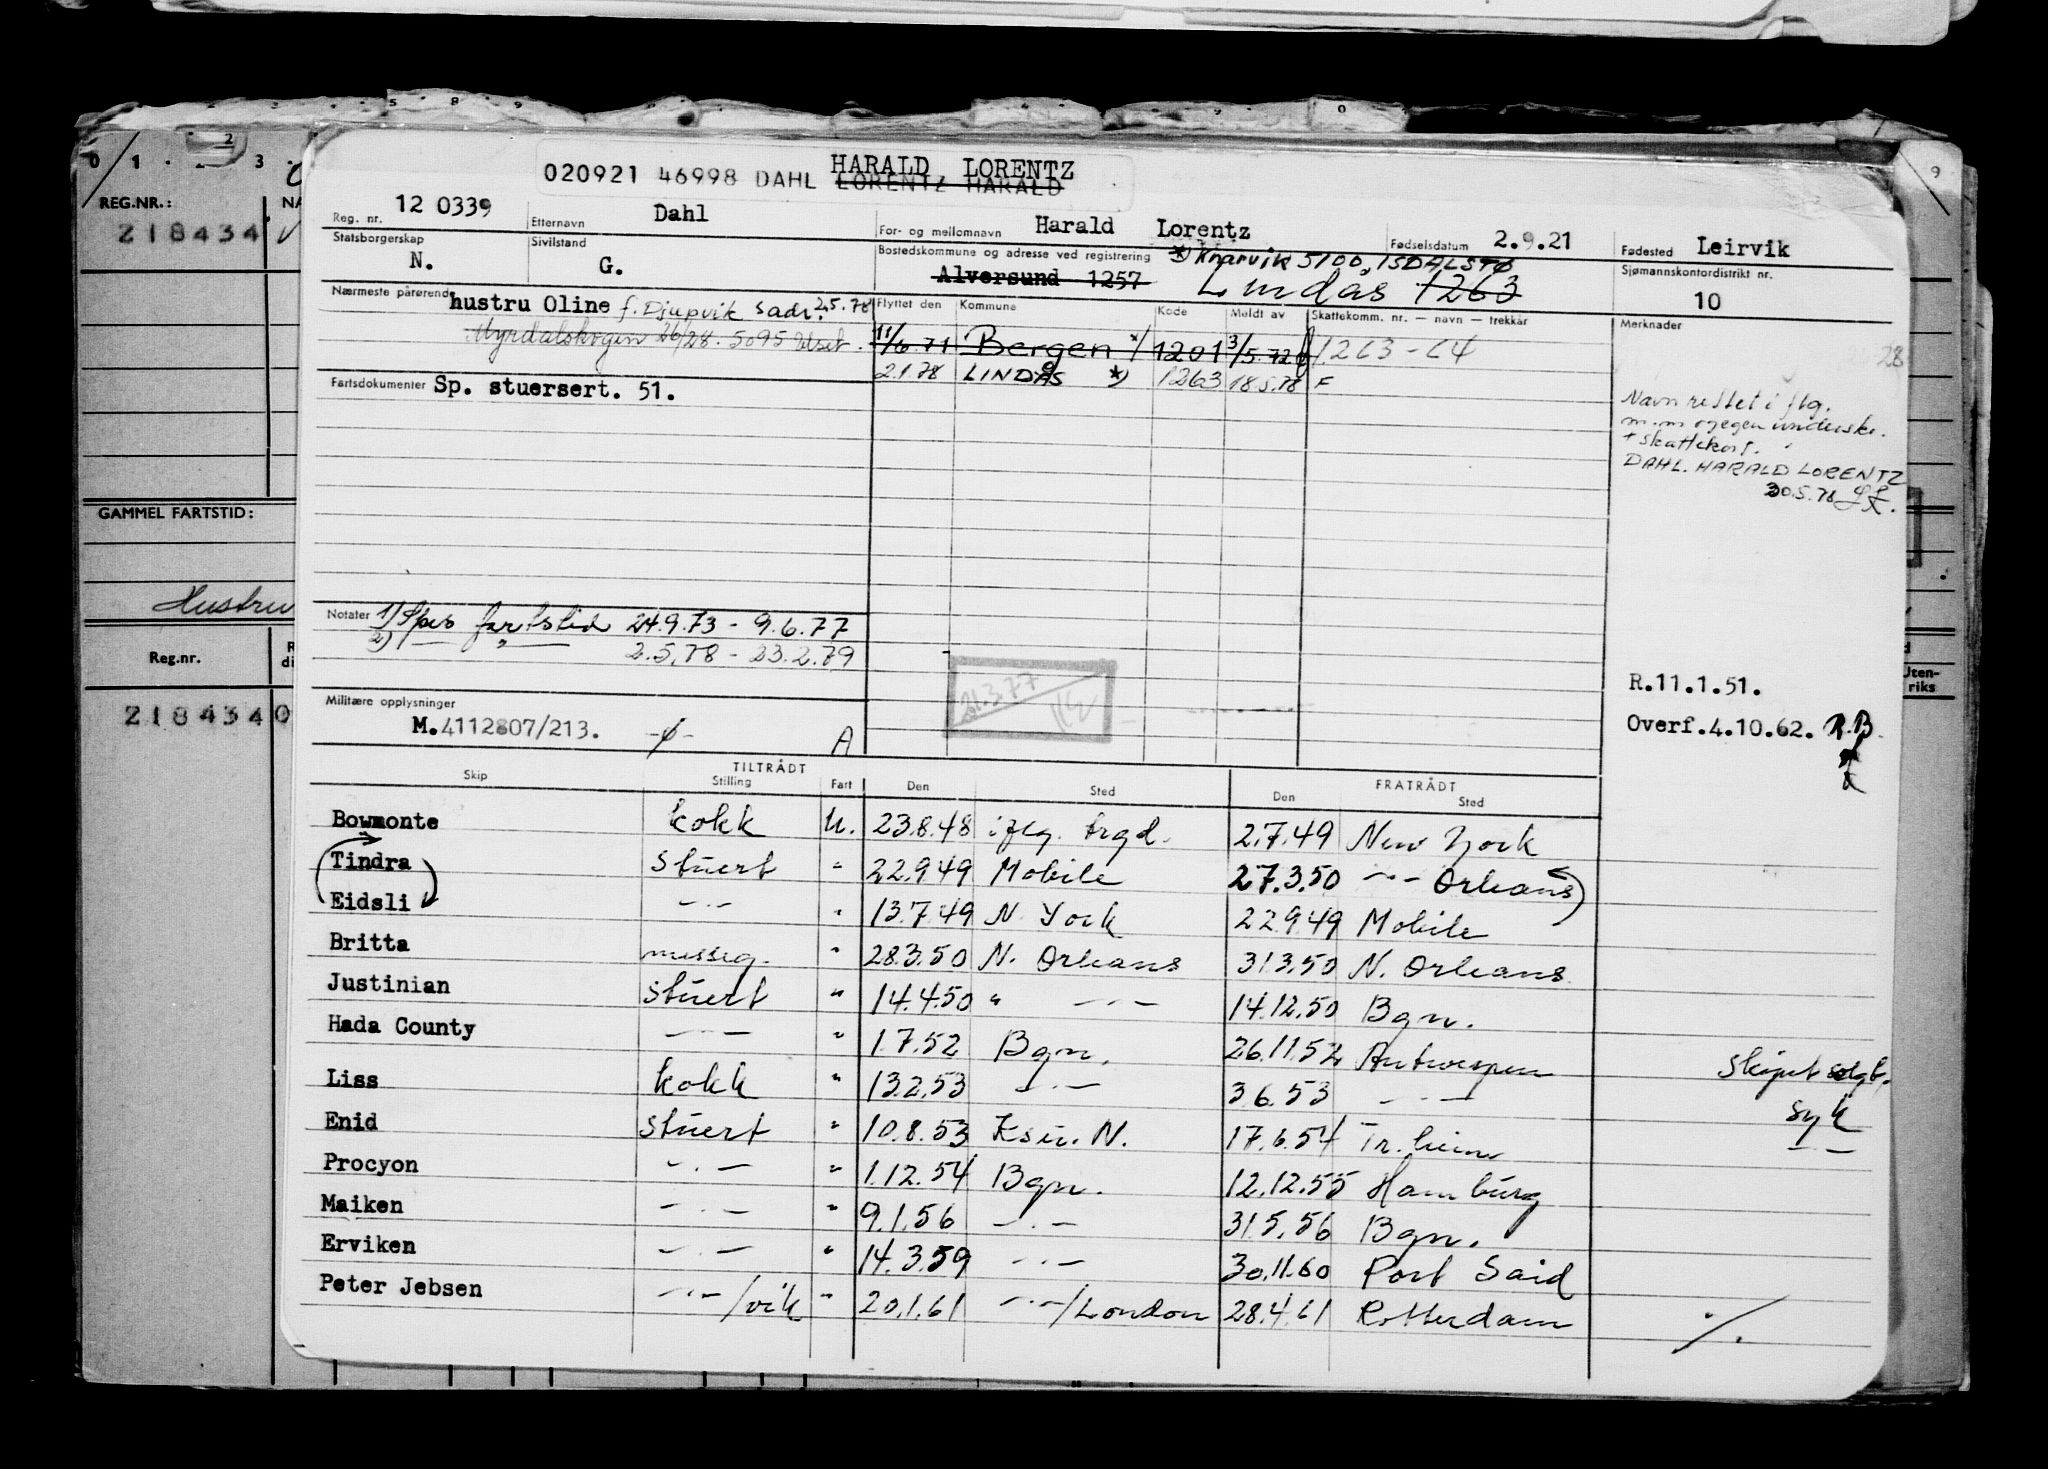 0 1 . 2 3 . 5 8 9 0 9
REG.NR.: NA
218434
GAMMEL FARTSTID:
Hustru
Reg.nr. R di
218434 0
d
Uten-
riks
020921 46998 DAHL LORENTZ HARALD
HARALD LORENTZ
Reg. nr. 12 0339 Etternavn Dahl For- og mellomnavn Harald Lorentz Fødselsdatum 2.9.21 Fødested Leirvik
Statsborgerskap N. Sivilstand G. Bostedskommune og adresse ved registrering *) Knarvik 5100, ISDALSTØ Sjømannskontordistrikt nr. 10
Alversund 1257 Lindås 1263
Nærmeste pårørende hustru Oline f. Djupvik sadr. 2.5.78 Flyttet den Kommune Kode Meldt av Skattekomm. nr. — navn — trekkår Merknader
Myrdalskogen 26/28. 5095 Ulset. 11/6.71 Bergen *) 1201 3/5.72 1263-64 28
2.1.78 LINDÅS *) 1263 18.5.78 F
Fartsdokumenter Sp. stuersert. 51.
Navn rettet i flg.
m.m og egen undersk.
+ skattekort.
DAHL. HARALD LORENTZ
30.5.78
Notater 1) Spes fartstid 24.9.73 - 9.6.77
2) — " — 2.5.78 - 23.2.79
21.3.77
R.11.1.51.
Militære opplysninger M.4112807/213. -ø- A
Overf.4.10.62. R.B.
TILTRÅDT FRATRÅDT
Skip Stilling Fart Den Sted Den Sted
Bowmonte kokk U. 23.8.48 iflg. trgd. 2.7.49 New York
Tindra Stuert " 22.9.49 Mobile 27.3.50 —"— Orleans
Eidsli —"— " 13.7.49 N. York 22.9.49 Mobile
Britta messeg. " 28.3.50 N. Orleans 31.3.50 N. Orleans
Justinian Stuert " 14.4.50 " —"— 14.12.50 Bgn.
Hada County —"— " 1.7.52 Bgn. 26.11.52 Antwerpen Skipet solgt.
Liss kokk " 13.2.53 —"— 3.6.53 —"— syk
Enid Stuert " 10.8.53 Ksu. N. 17.6.54 Tr.heim —"—
Procyon —"— " 1.12.54 Bgn. 12.12.55 Hamburg
Maiken —"— " 9.1.56 —"— 31.5.56 Bgn.
Erviken —"— " 14.3.59 —"— 30.11.60 Port Said
Peter Jebsen —"—/vik " 20.1.61 —"—/London 28.4.61 Rotterdam ./.